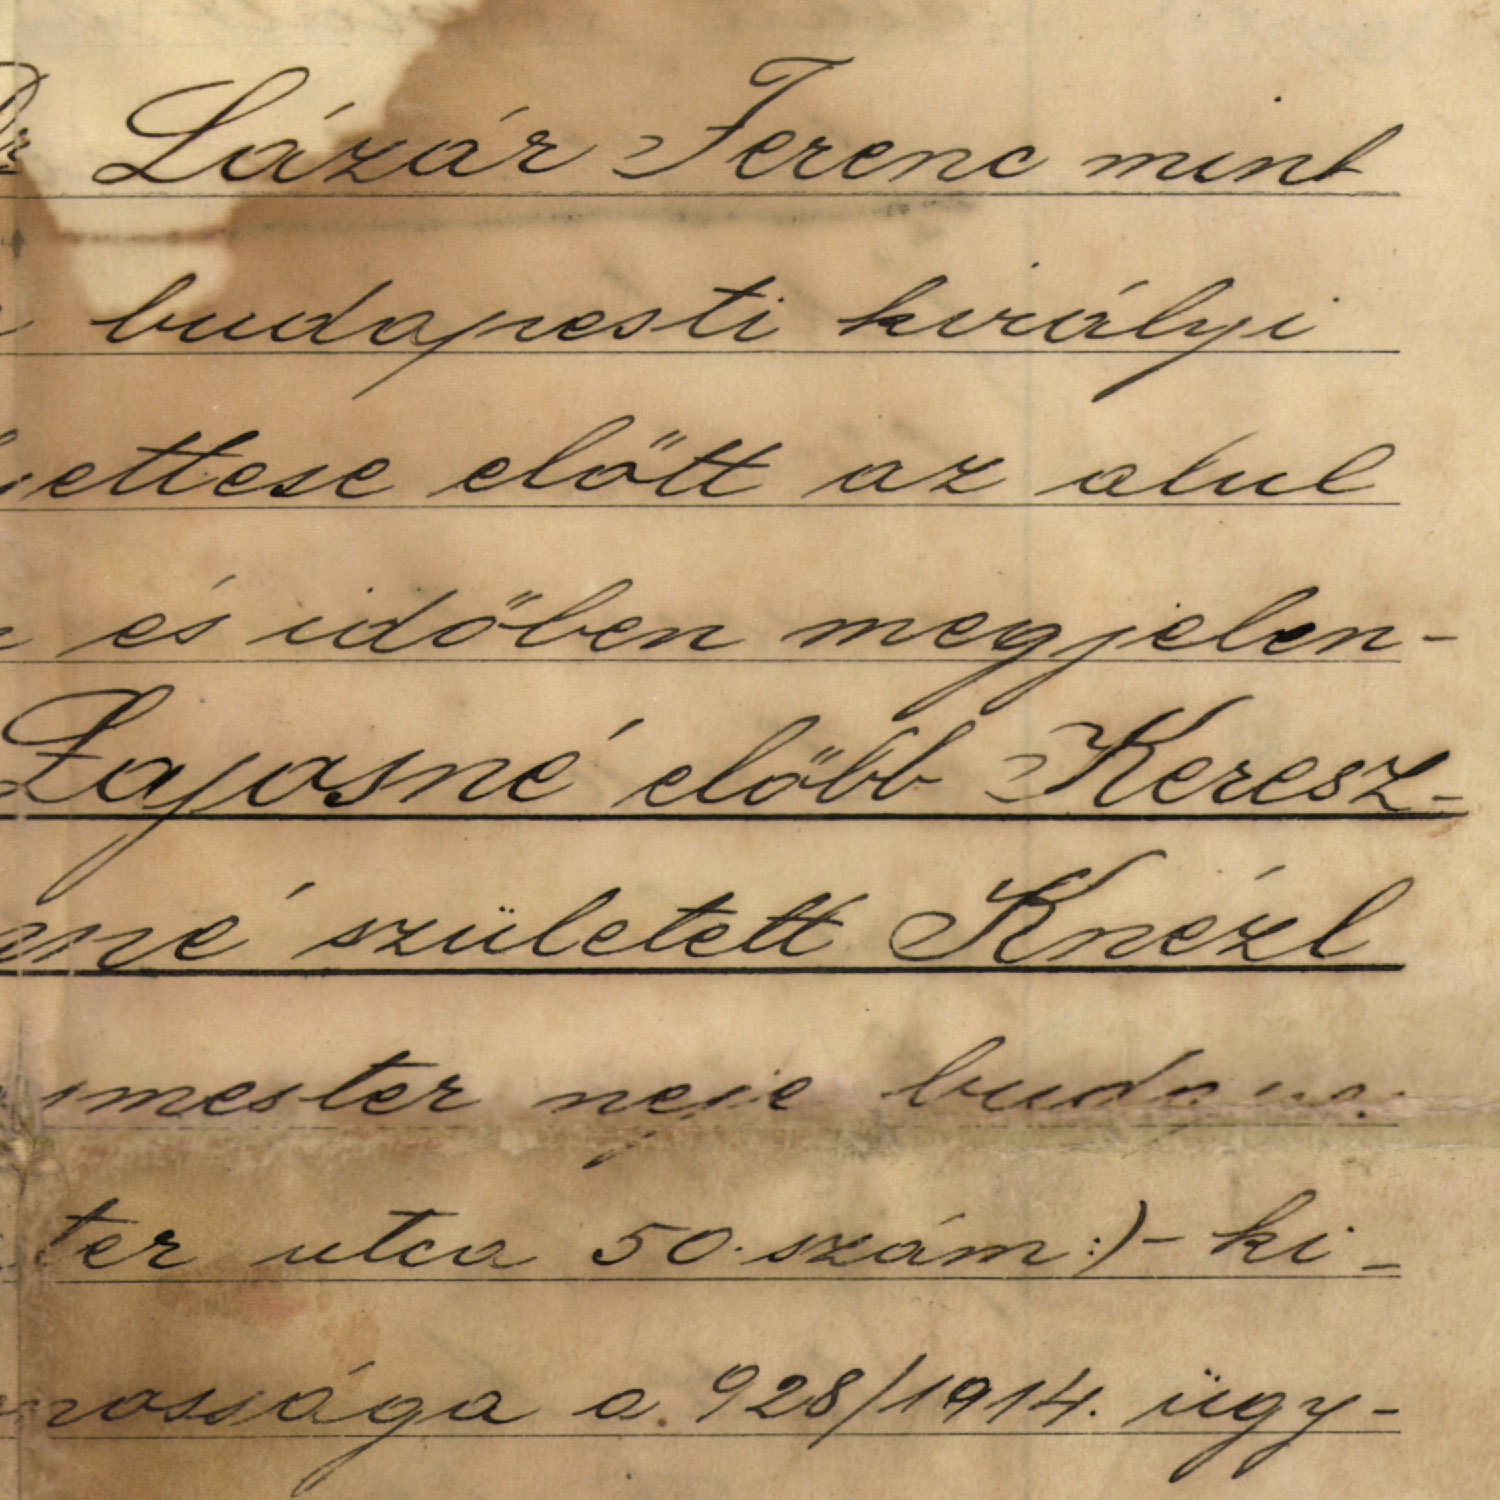 Dr Lázár Ferenc mint
budapesti királyi
helyettese előtt az alul
és időben megjelen-
Lajosné előbb Keresz-
né született Knézl
smester neje budape
ter utca 50. szám:)- ki-
nossága a 928/1914. ügy-